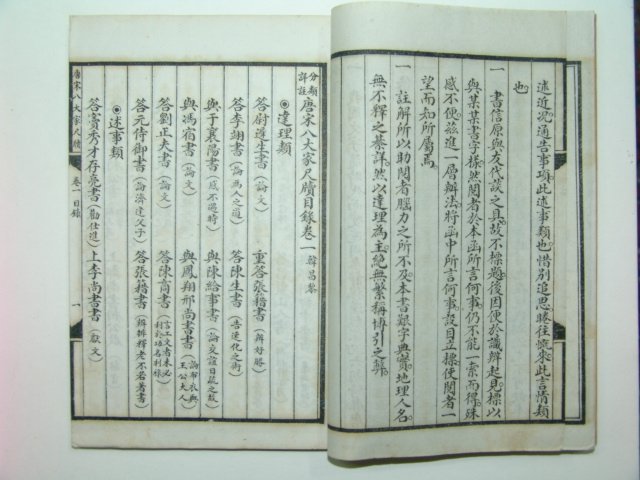 述近况通告事項此述事類也惜別追思睠往慨來此言情類
也
一 書信原與友代談之具故不標題後因便於識辨起見標以
與某某書字樣然閱者於本函所言何事仍不能一索而得殊
感不便茲進一層辦法將函中所言何事設目立標使閱者一
望而知所屬焉
一 註解所以助閱者腦力之所不及本書艱字典實地理人名
無不釋之綦詳然以達理為主絕無繁稱博引之弊
分類詳註唐宋八大家尺牘目錄卷一 韓昌黎
◉達理類
答尉遲生書(論文) 重答張籍書(辨好勝)
答李翊書(論為人之道) 答陳生書(告速化之術)
與于襄陽書(感不遇時) 與陳給事書(論交誼日疏之故)
與馮宿書(論文) 與鳳翔邢尚書書(論布衣與王公大人)
答劉正夫書(論文) 答陳商書(言工文者未必利於功名利祿)
答元侍御書(論濟逢父子) 答張籍書(辨排釋老不若著書)
◉述事類
答竇秀才存亮書(勸仕進) 上李尚書書(獻文)
唐宋八大家尺牘 卷一目錄 一